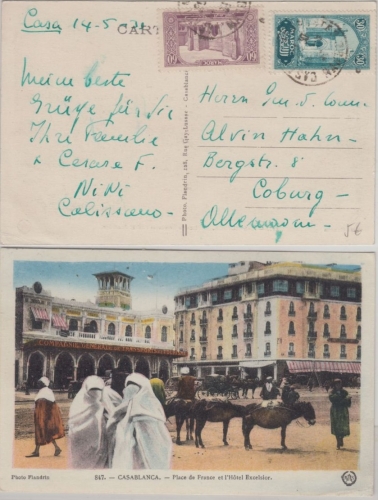 Casa 14-5
CART
MAROC
MAROC
Meine beste
Grüße für Sie
Ihre Familie
& Cesare F.
Nini
Calissano -
Photo. Flandrin, Casablanca
Herrn
Alvin Hahn -
Bergstr. 8
Coburg -
Allemagne -
56
Photo Flandrin
847. - CASABLANCA. - Place de France et l'Hôtel Excelsior.